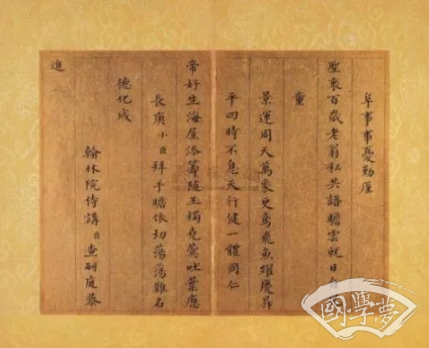 阜事事憂勤廑
聖衷百歲老翁私共語瞻雲就日自
童
景運周天萬彙更鳶飛魚躍慶昇
平四時不息天行健一體同仁
帝好生海屋添籌隨玉燭堯蓂吐葉應
長庚小臣拜手瞻依切蕩蕩難名
德化成
翰林院侍講臣查嗣庭恭
進
國學夢